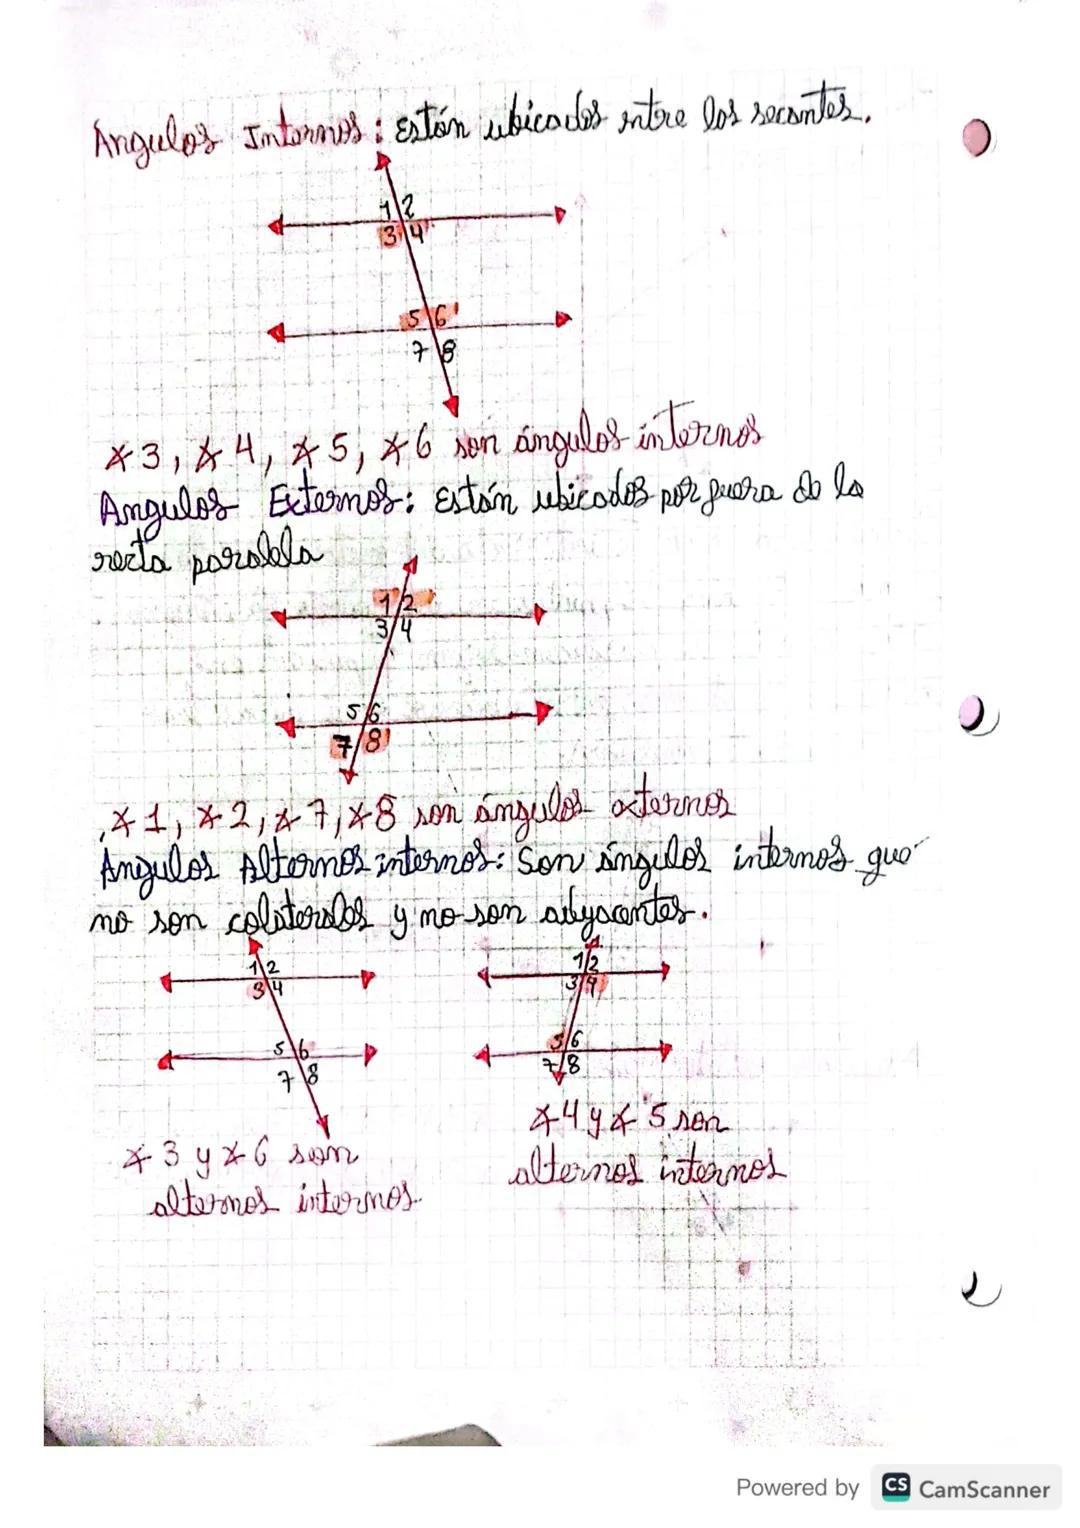 Angulos Internos: Están ubicados entre los secantes.
1 2
3 4
5 6
7 8
∡3, ∡4, ∡5, ∡6 son ángulos internos
Angulos Externos: Están ubicados por fuera de la
recta paralela
1 2
3 4
5 6
7 8
∡1, ∡2, ∡7, ∡8 son ángulos externos
Angulos Alternos internos: Son ángulos internos que
no son colaterales y no son adyacentes.
1 2 1 2
3 4 3 4
5 6 5 6
7 8 7 8
∡3 y ∡6 son
alternos internos.
∡4 y ∡5 son
alternos internos
Powered by CS CamScanner